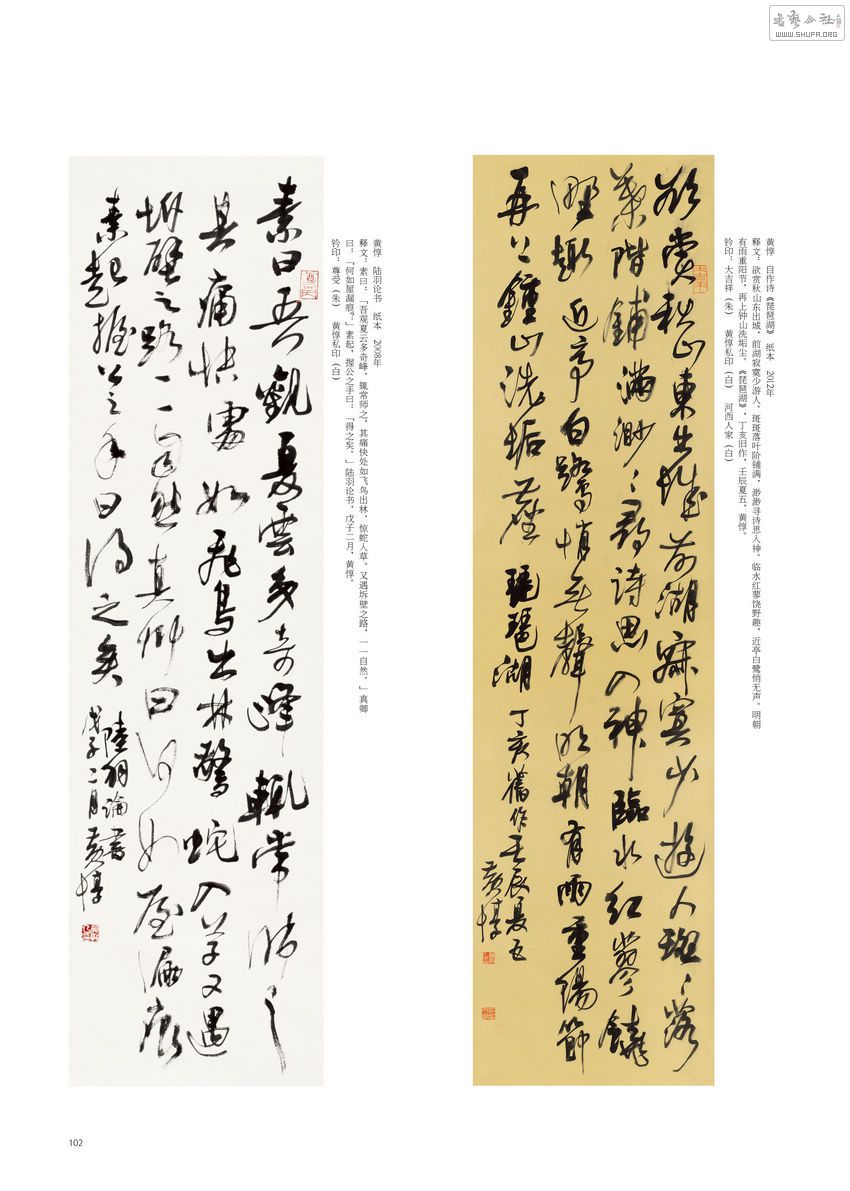 書藝公社
WWW.SHUFA.ORG
黄惇 自作诗《琵琶湖》 纸本 2012年
释文：欲赏秋山东出城，前湖寂寞少游人。斑斑落叶阶铺满，渺渺寻诗思入神。临水红蓼饶野趣，近亭白鹭悄无声。明朝
有雨重阳节，再上钟山洗垢尘。《琵琶湖》，丁亥旧作，壬辰夏五，黄惇。
钤印：大吉祥（朱） 黄惇私印（白） 河西人家（白）
欲賞秋山東出城前湖寂寞少遊人斑〻落
葉階鋪滿渺〻尋詩思入神臨水紅蓼饒
野趣近亭白鷺悄无聲明朝有雨重陽節
再上鍾山洗垢塵 琵琶湖 丁亥舊作壬辰夏五
黄惇
黄惇 陆羽论书 纸本 2008年
释文：素曰：「吾观夏云多奇峰，辄常师之，其痛快处如飞鸟出林，惊蛇入草。又遇坼壁之路，一一自然。」真卿
曰：「何如屋漏痕？」素起，握公之手曰：「得之矣。」陆羽论书，戊子二月，黄惇。
钤印：尊受（朱） 黄惇私印（白）
素曰吾觀夏雲多奇峰輒常師之
其痛快處如飛鳥出林驚蛇入草又遇
坼壁之路一一自然真卿曰何如屋漏痕
素起握公之手曰得之矣 陸羽論書
戊子二月黄惇
102